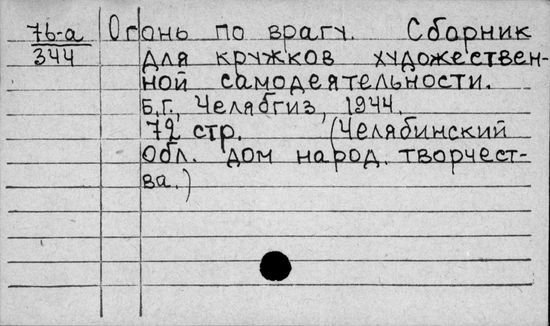 76-а Огонь по врагу. Сборник
344 для кружков художествен-
ной самодеятельности.
Б.Г., Челябгиз, 1944.
72 стр. (Челябинский
обл. дом народ. творчест-
ва.)